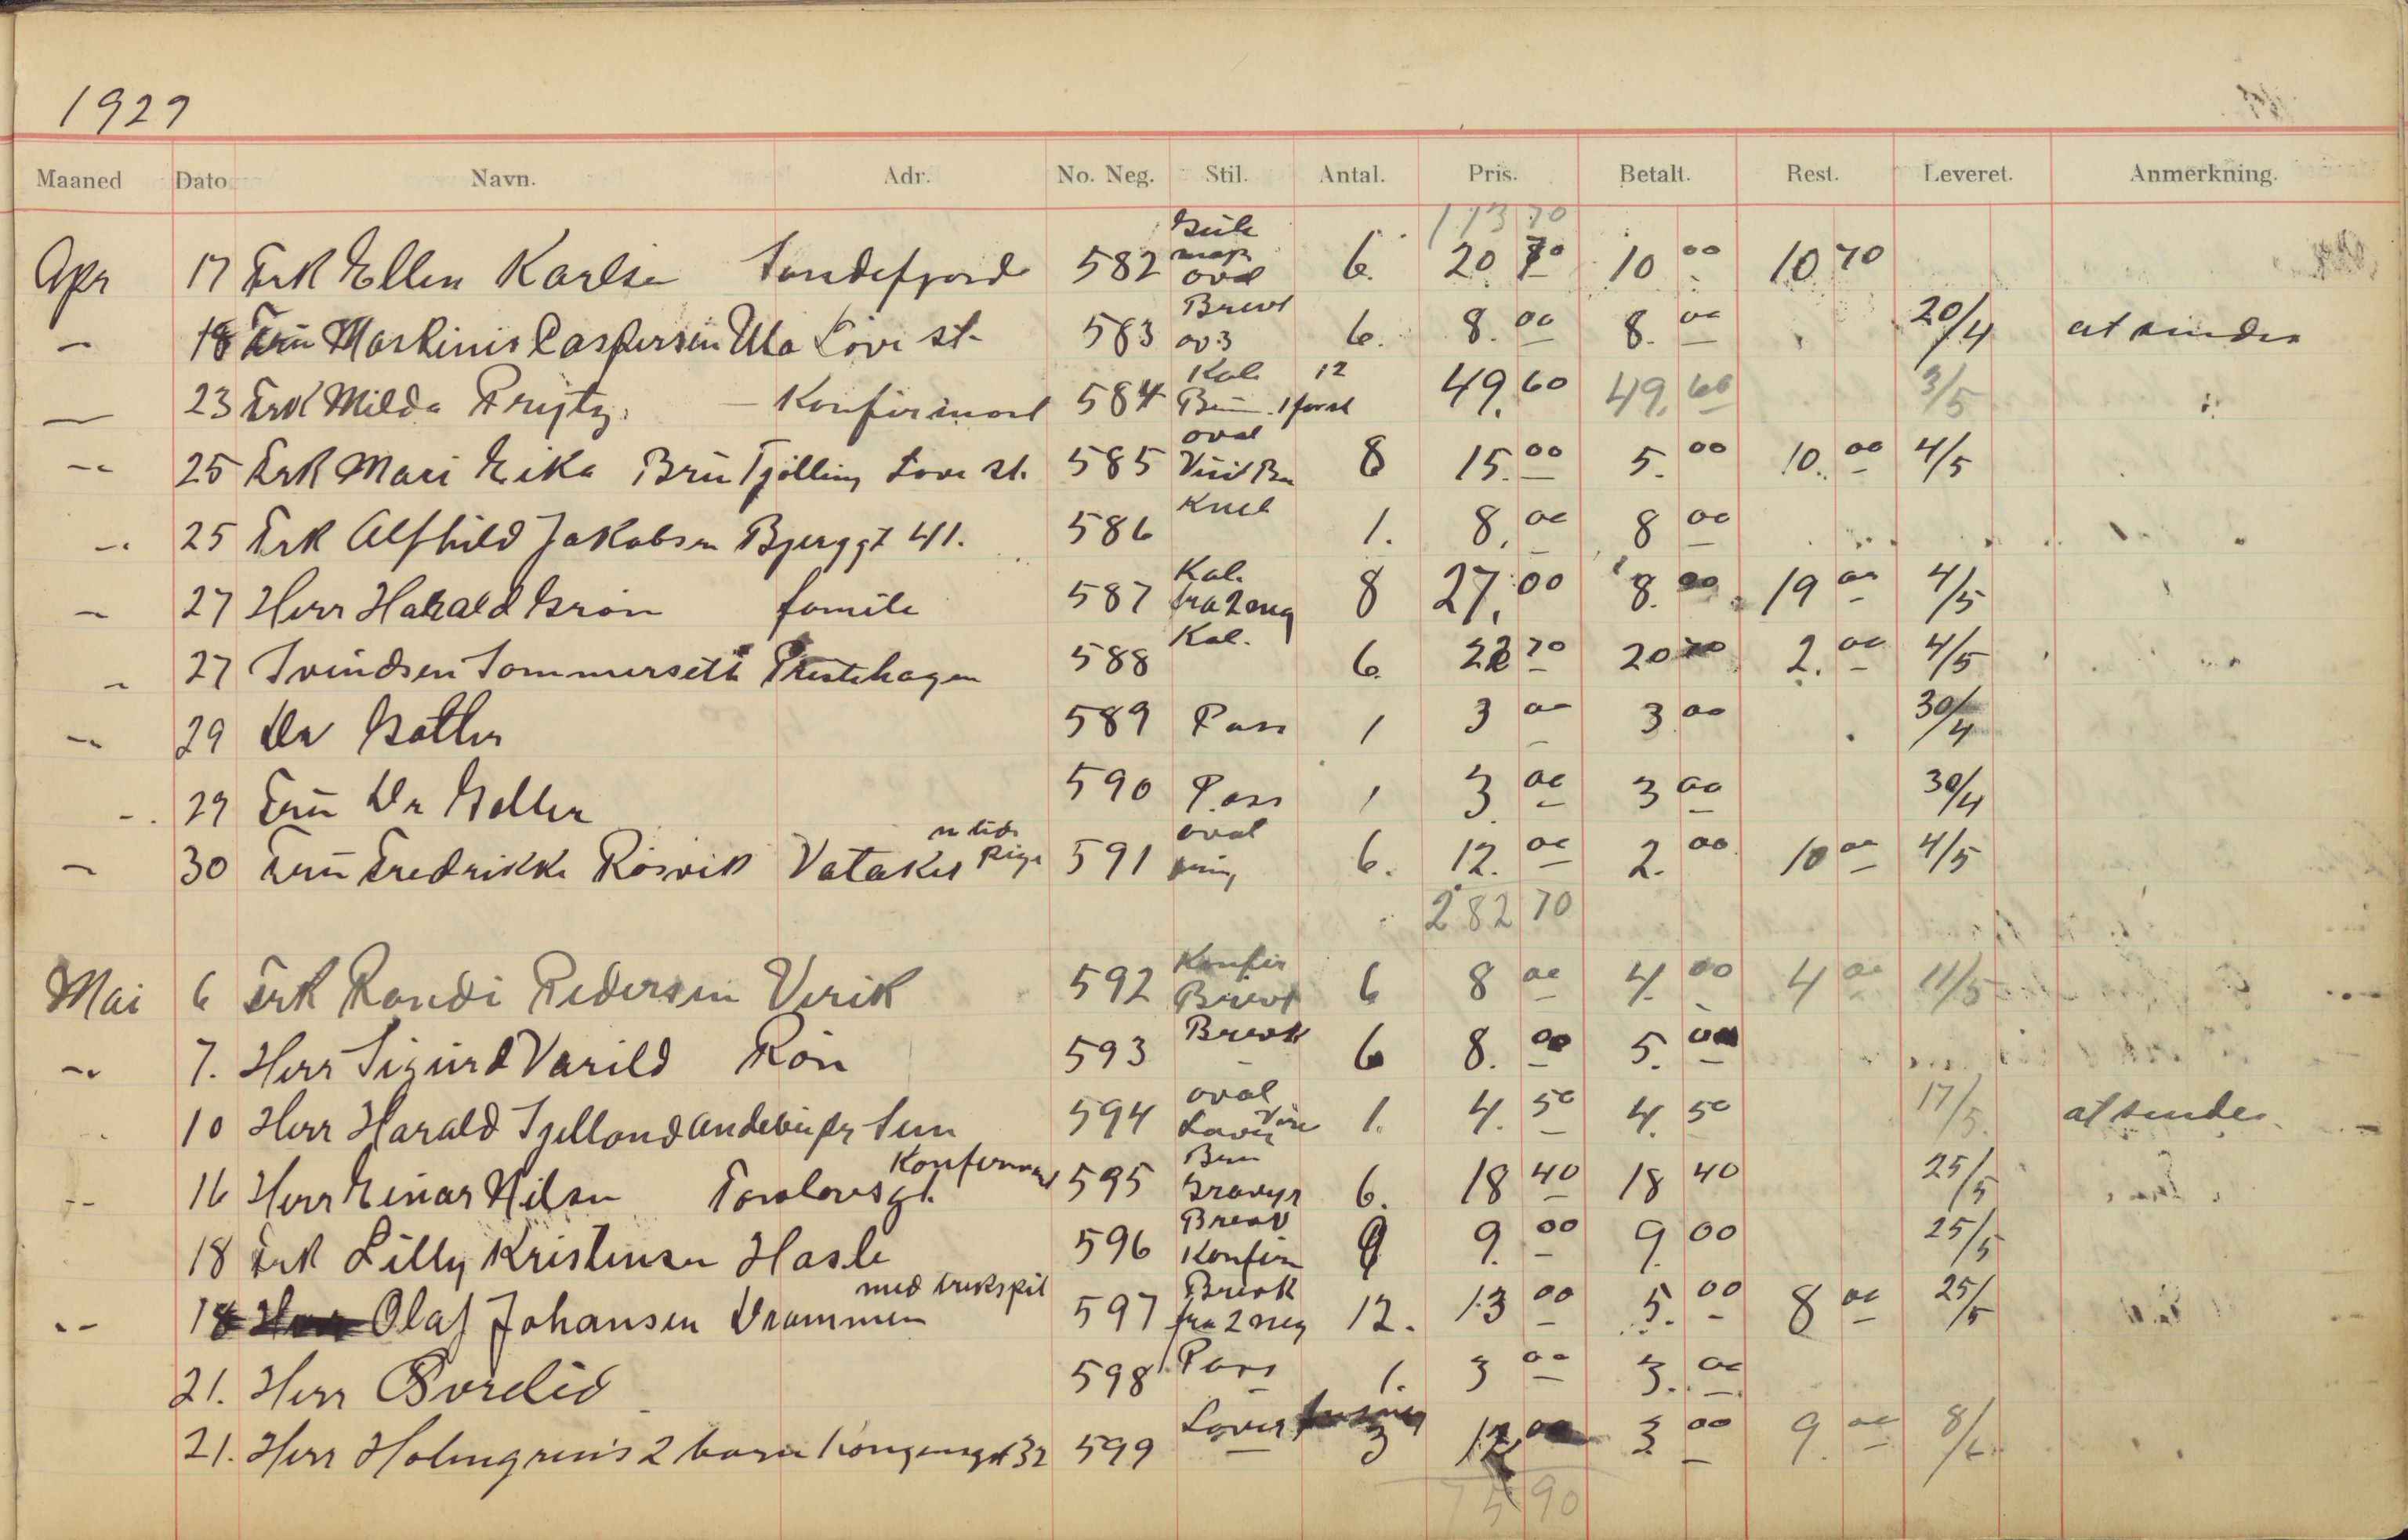 1927
Maaned Dato Navn. Adr. No. Neg. Stil. Antal. Pris. Betalt. Rest. Leveret. Anmerkning.
113 70
Apr 17 Frk Ellen Karlsen Sandefjord 582 oval 6. 20 70 10 00 10 70
— 18 Frü Maskinis Caspersen Ula Löve st. 583 Brevk ov. 3 6. 8. 00 8. 00 20/4 at sendes
— 23 Frk Milda Prytz. Konfirmant 584 Kab 12 Brun 1 forst 49. 60 49. 60 3/5
— 25 Frk Mari Eika Brü Tjölling Löve st. 585 oval Visit Bru 8 15. 00 5. 00 10. 00 4/5
— 25 Frk Alfhild Jakobsen Bjerggt 41. 586 Knel 1. 8. 00 8 00
— 27 Herr Harald Grön familie 587 Kab. fra 2 neg 8 27. 00 8. 00 19 00 4/5
— 27 Svendsen Sommerseth Prestehagen 588 Kab. 6. 22 70 20 70 2. 00 4/5
— 29 Dr Gotler 589 Pass 1 3 00 3 00 30/4
— 29 Frü Dr Gotler 590 Pass 1 3 00 3 00 30/4
— 30 Frü Fredrikke Rösvik Vataker 591 oval 6. 12. 00 2. 00 10 00 4/5
282 70
Mai 6 Frk Randi Pedersen Virik 592 Konfir Brevk 6 8 00 4. 00 4 00 11/5
— 7. Herr Sigürd Varild Rön 593 Brevk 6 8. 00 5. 00
10 Herr Harald Gjelland Andebü pr Sem 594 oval 1. 4. 50 4. 50 17/5. at sendes
— 16 Herr Einar Nilsen Torolovsgt. Konfirmant 595 Brun Gravyr 6. 18 40 18 40 25/5
18 Frk Lilly Kristensen Hasle 596 Brevk Konfir 6 9. 00 9. 00 25/5
— 18 Olaf Johansen Drammen med trekspil 597 Brevk fra 2 neg 12. 13 00 5. 00 8 00 25/5
21. Herr Borelid 598 Pass 1. 3 00 3. 00
21. Herr Holmgrens 2 barn Kongensgt 32 599 3 12 00 3 00 9. 00 8/6
75 90